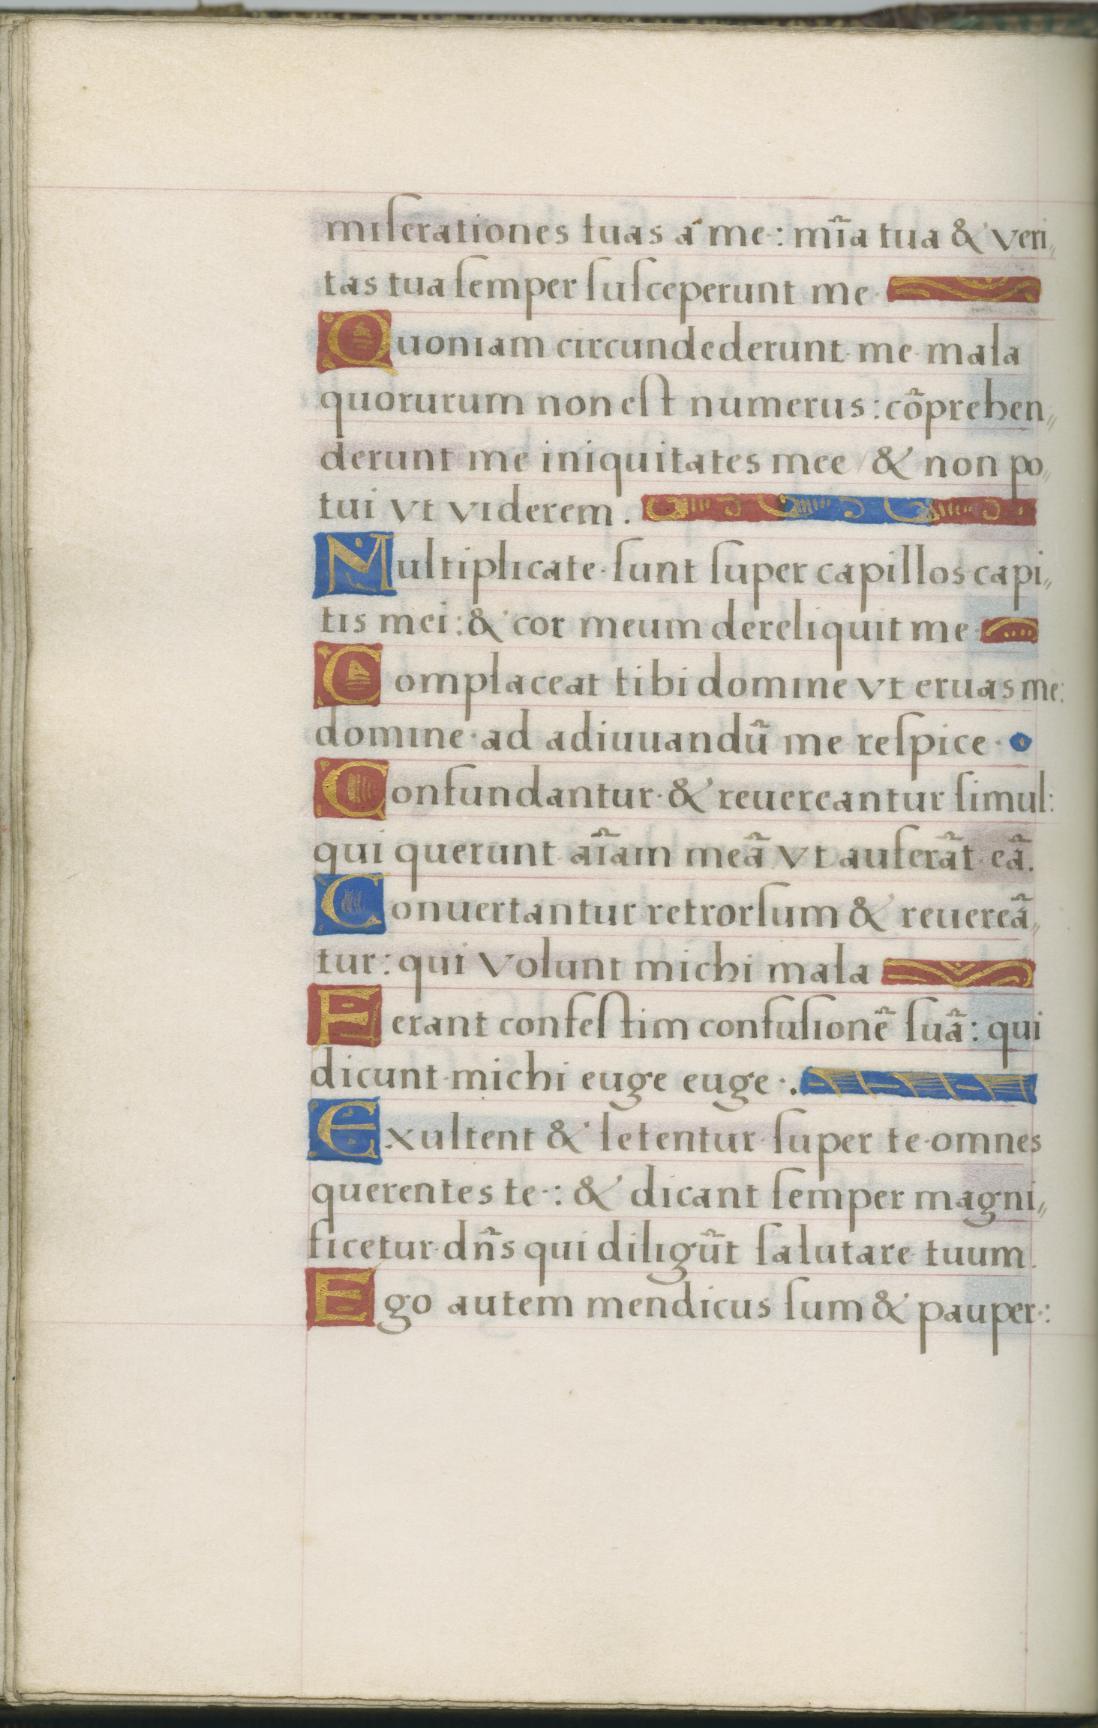 miserationes tuas a me: m̃ia tua & veri„
tas tua semper susceperunt me
Quoniam circundederunt me mala
quorurum non est numerus: cõprehen„
derunt me iniquitates mee & non po„
tui vt viderem.
Multiplicate sunt super capillos capi„
tis mei: & cor meum dereliquit me
Complaceat tibi domine vt eruas me:
domine ad adiuuandũ me respice
Confundantur & reuereantur simul:
qui querunt aĩam meã vt auferãt eã.
Conuertantur retrorsum & reuereã„
tur: qui volunt michi mala
Ferant confestim confusionẽ suã: qui
dicunt michi euge euge.
Exultent & letentur super te omnes
querentes te: & dicant semper magni„
ficetur dñs qui diligũt salutare tuum.
Ego autem mendicus sum & pauper: